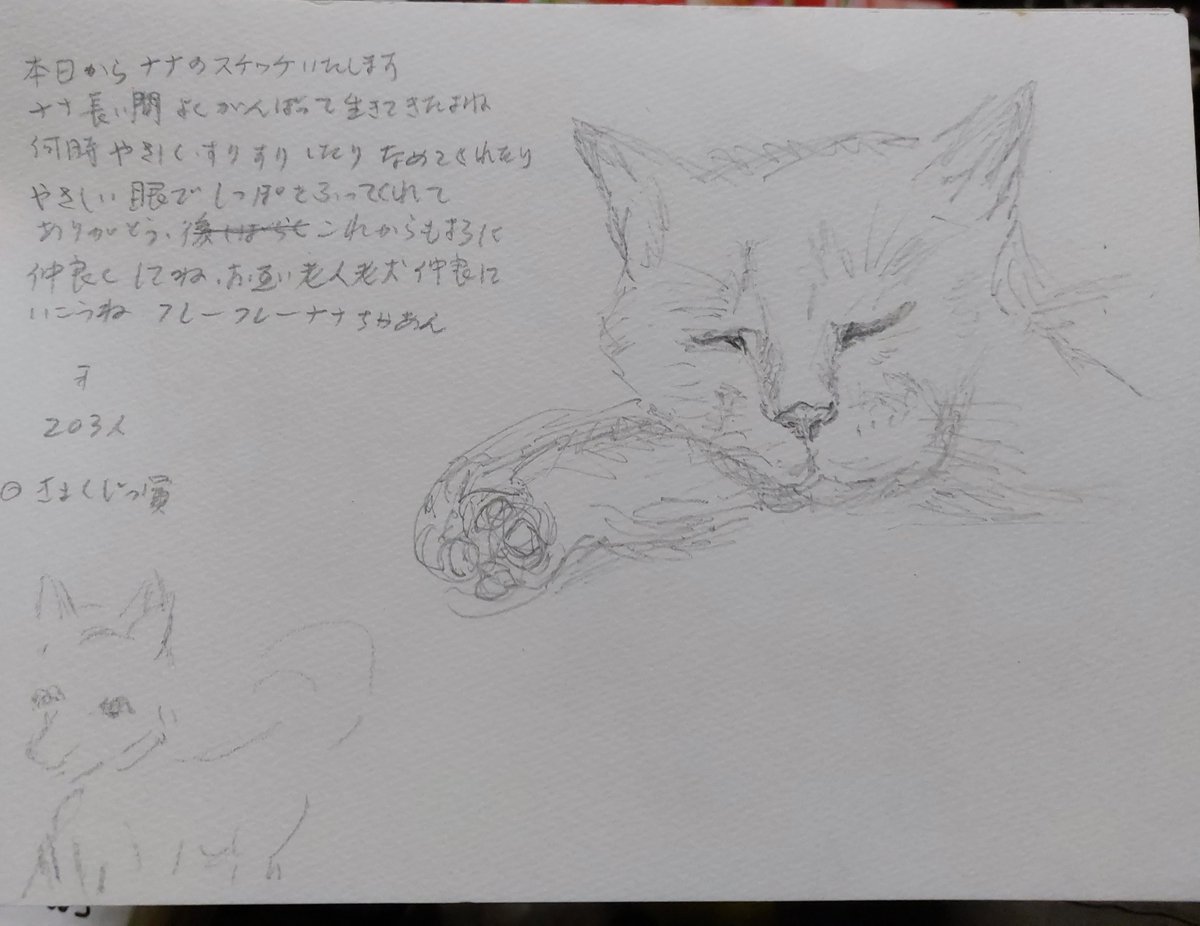 本日からナナのスケッケいたします
ナナ長い間よくがんばって生きてきたよね
何時やさしくすりすりしたりなめてくれたり
やさしい眼でしっぽをふってくれて
ありがとう、これからもまろに
仲良くしてね、お互い老人老犬仲良に
いこうね フレーフレーナナちゃあん
203人